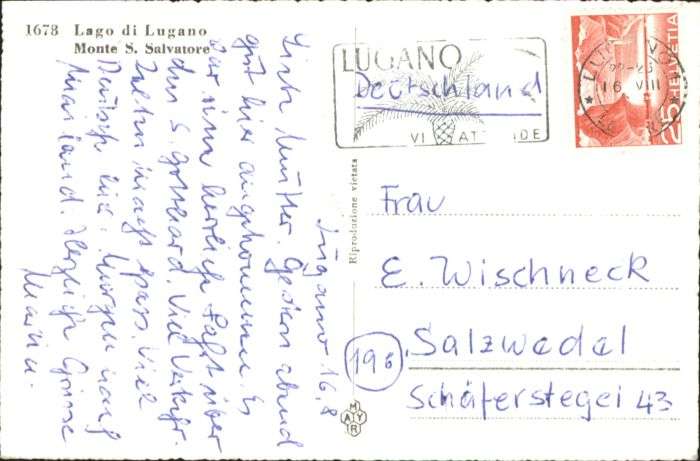 1673 Lago di Lugano
Monte S. Salvatore
Lugano 16.8
Liebe Mutter. Gestern abend
gut hier angekommen. Es
war eine herrliche Fahrt über
den S. Gotthard. Viel Verkehr.
Zelten macht Spass. Viel
Deutsche hier. Morgen nach
Mailand. Herzliche Grüsse
LUGANO
VI ATTENDE
Deutschland
HELVETIA
25
16 VIII
Riproduzione vietata
Frau
E. Wischneck
196
Salzwedel
Schäferstegel 43
MAYR